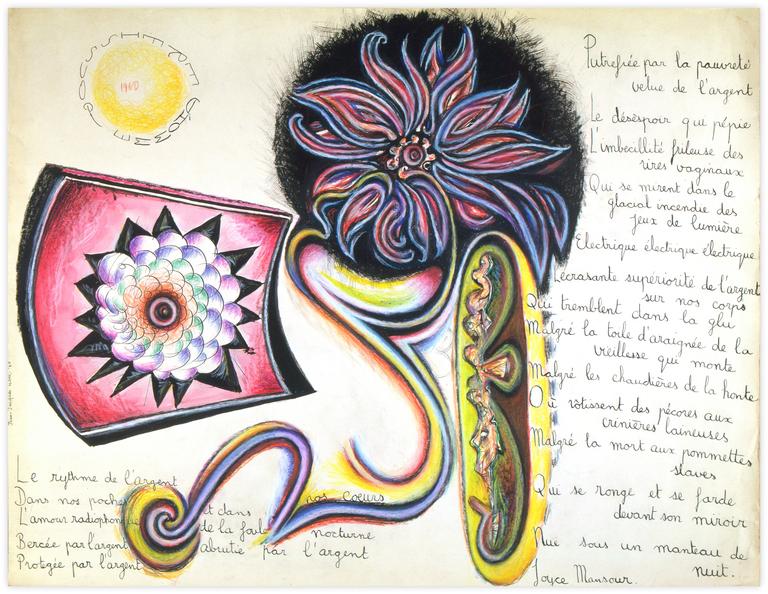 1960
Putrefiée par la pauvreté
velue de l'argent
Le désespoir qui pépie
L'imbecillité frileuse des
rires vaginaux
Qui se mirent dans le
glacial incendie des
jeux de lumière
Electrique électrique électrique
Lecrasante supériorité de l'argent
sur nos corps
Qui tremblent dans la glu
Malgré la toile d'araignée de la
vieillesse qui monte
Malgré les chaudières de la honte
Où rôtissent des pécores aux
crinières laineuses
Malgré la mort aux pommettes
slaves
Qui se ronge et se farde
devant son miroir
Nue sous un manteau de
nuit.
Joyce Mansour.
Le rythme de l'argent
Dans nos poches et dans nos coeurs
L'amour radiophonique de la foule nocturne
Bercée par l'argent abrutie par l'argent
Protegée par l'argent
Jean-Jacques Lebel